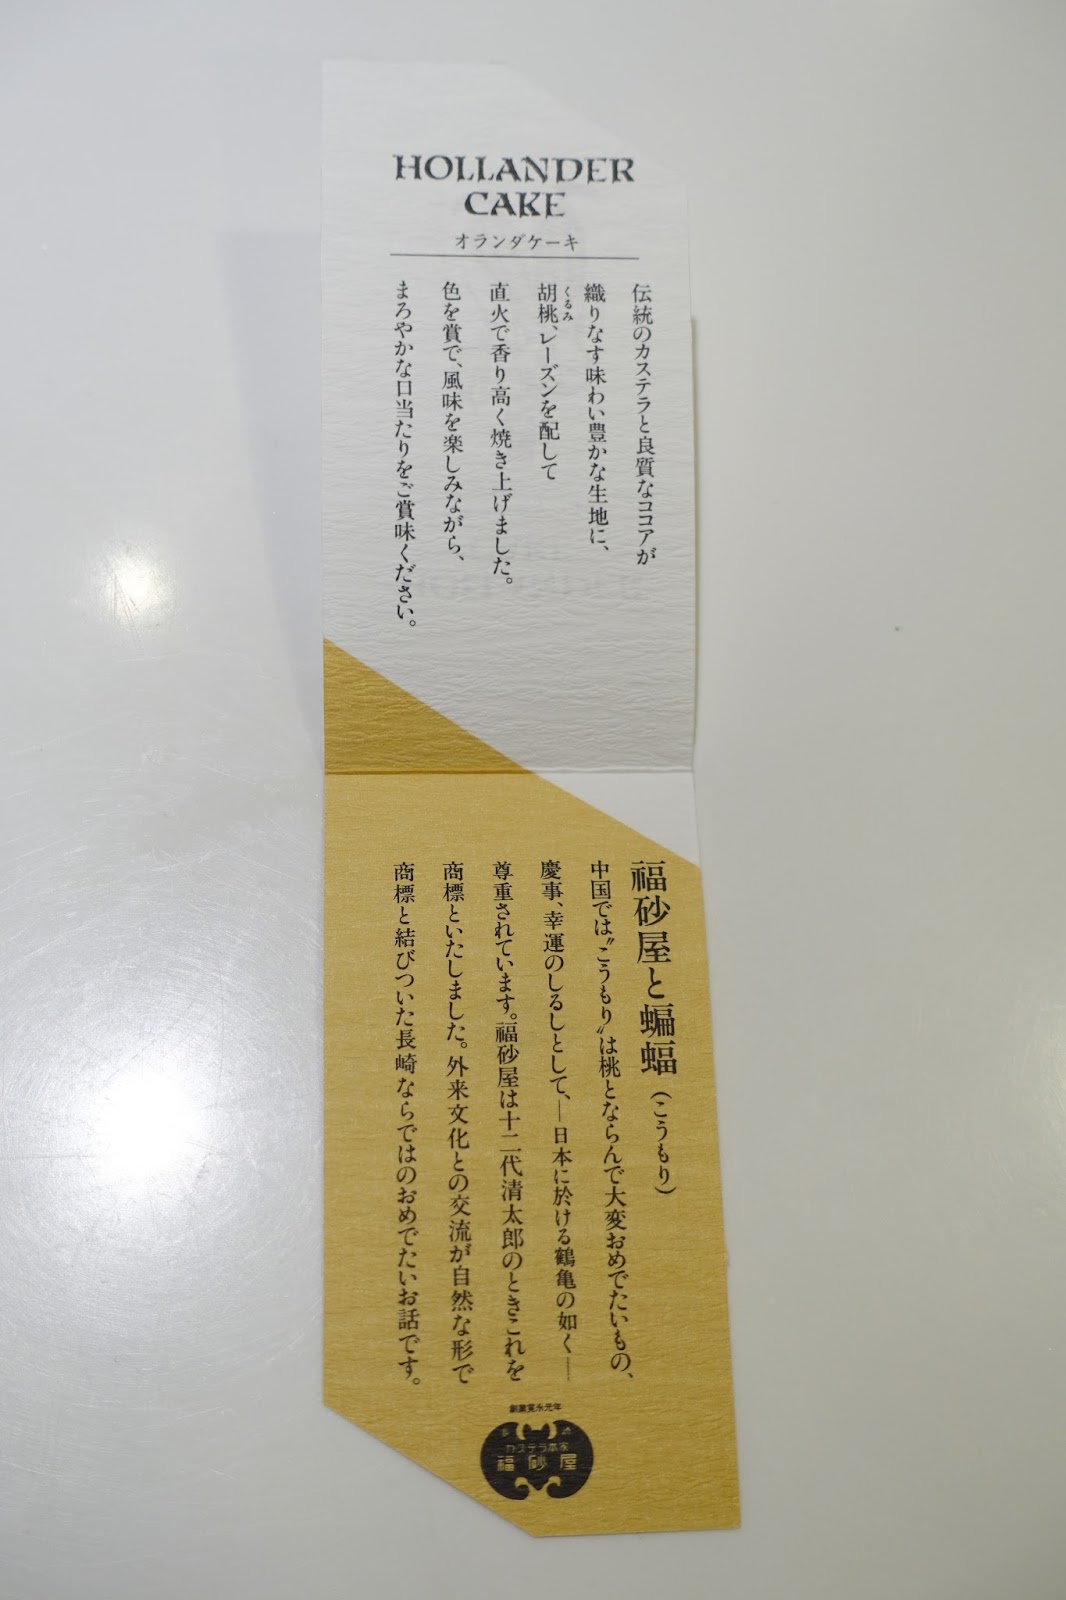 HOLLANDER
CAKE
オランダケーキ
伝統のカステラと良質なココアが
織りなす味わい豊かな生地に、
胡桃、レーズンを配して
くるみ
直火で香り高く焼き上げました。
色を賞で、風味を楽しみながら、
まろやかな口当たりをご賞味ください。
福砂屋と蝙蝠(こうもり)
中国では〝こうもり〟は桃とならんで大変おめでたいもの、
慶事、幸運のしるしとして、―日本に於ける鶴亀の如く―
尊重されています。福砂屋は十二代清太郎のときこれを
商標といたしました。外来文化との交流が自然な形で
商標と結びついた長崎ならではのおめでたいお話です。
創業寛永元年
カステラ本家
福砂屋